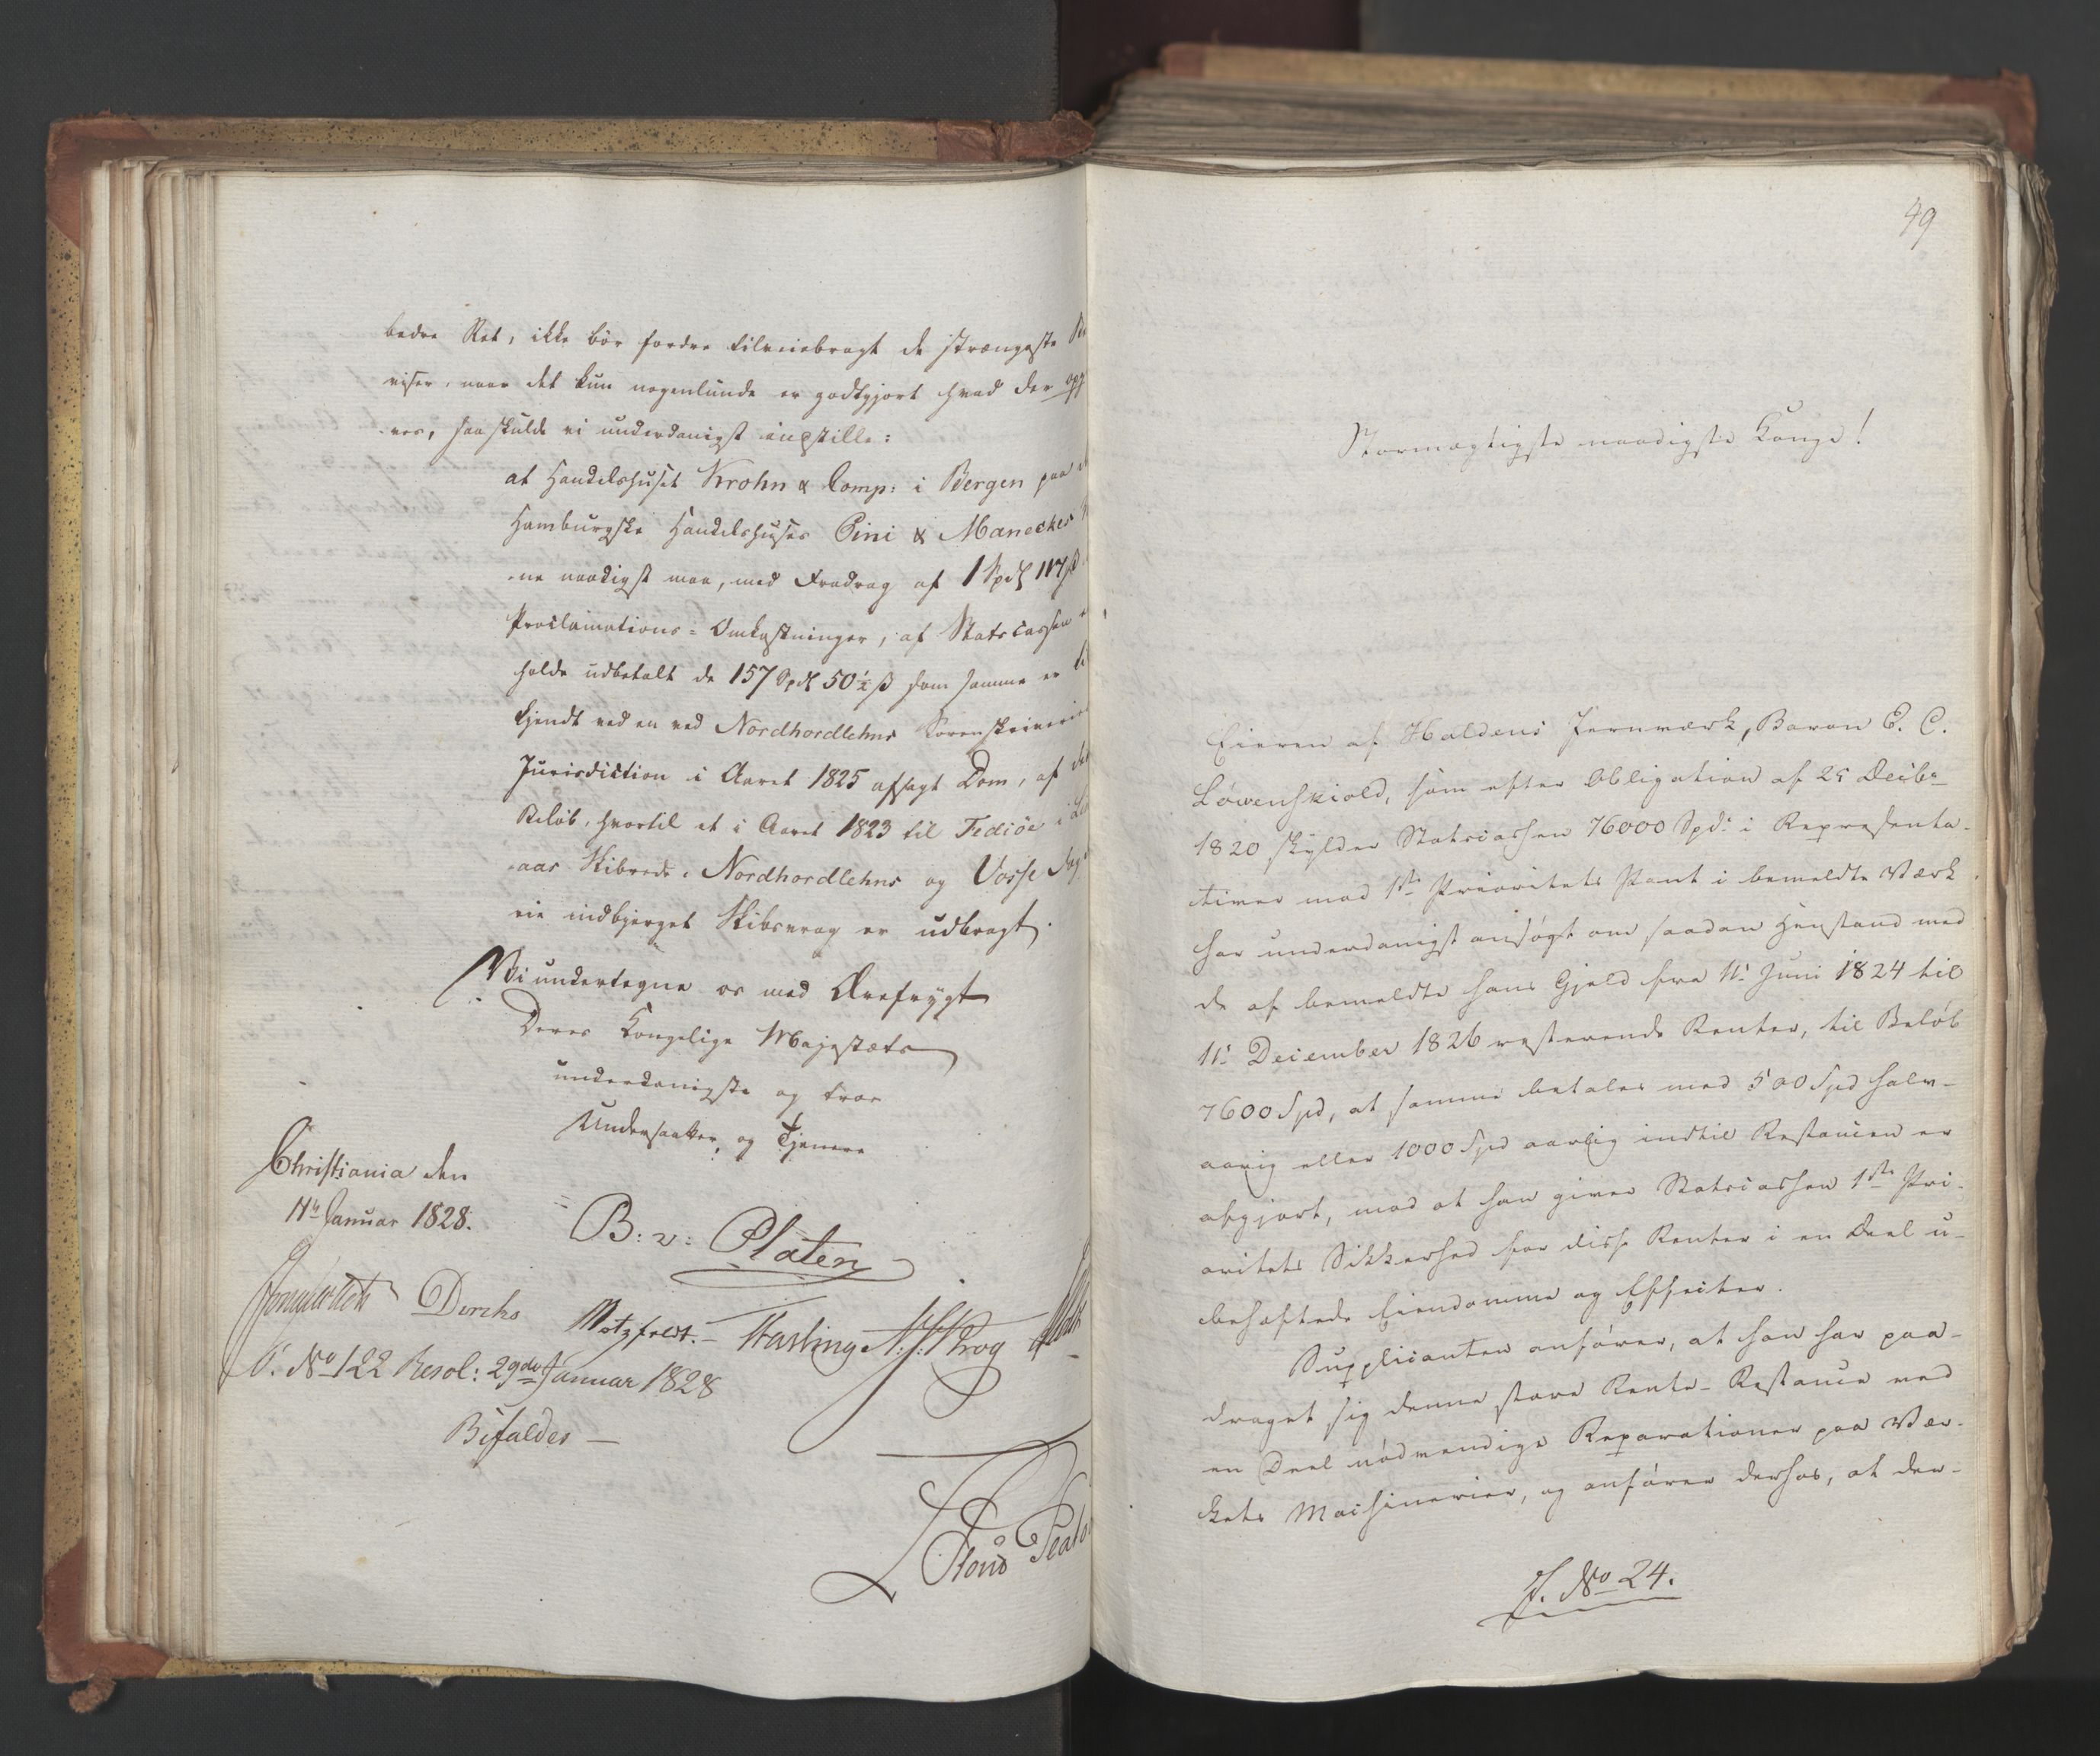 bedre Ret, ikke bör fordre tilveiebragt de strængeste
viser, naar det kun nogenlunde er godtgjort hvad der
ves, saa skulde vi underdanigst indstille:
at Handelshuset Krohn & Comp: i Bergen paa
Hamburgske Handelshuses Pini & Maneckes
ne naadigst maa, med Fradrag af 1 Spd 117 ß
Proclamations-Omkostninger, af Statscassen
holde udbetalt de 157 Spd 50½ ß som samme er
kjendt ved en ved Nordhordlehns Sorenskriverie
Jurisdiction i Aaret 1825 afsagt Dom, af det
Beløb, hvortil et i Aaret 1823 til Fediöe i
aas Skibrede, Nordhordlehns og Vosse Fog
rie indbjerget Skibsvrag er udbragt.
Vi undertegne os med Ærefrygt
Deres Kongelige Majestæts
underdanigste og troe
Undersaatter og Tjenere
Christiania den
11te Januar 1828.
B: v: Platen
Diriks Motzfeldt. Fasting N. J. Krog
S. No 122 Resol: 29de Januar 1828
Bifaldes —
49
Stormægtigste naadigste Konge!
Eieren af Holdens Jernværk, Baron E. C.
Løwenskiold, som efter Obligation af 25 Decbr
1820 skylder Statscassen 76000 Spd: i Representa-
tiver mod 1ste Prioritets Pant i bemeldte Værk
har underdanigst ansøgt om saadan Henstand med
de af bemeldte hans Gjeld fra 11: Juni 1824 til
11: December 1826 resterende Renter, til Beløb
7600 Spd, at samme betales med 500 Spd halv-
aarig eller 1000 Spd aarlig indtil Restancen er
afgjort, mod at han giver Statscassen 1ste Pri-
oritets Sikkerhed for disse Renter i en Deel u-
behæftede Eiendomme og Effecter.
Supplicanten anfører, at han har paa-
draget sig denne store Rente-Restance ved
en Deel nødvendige Reparationer paa Vær-
kets Maschinerier, og anfører derhos, at der-
J. No 24.